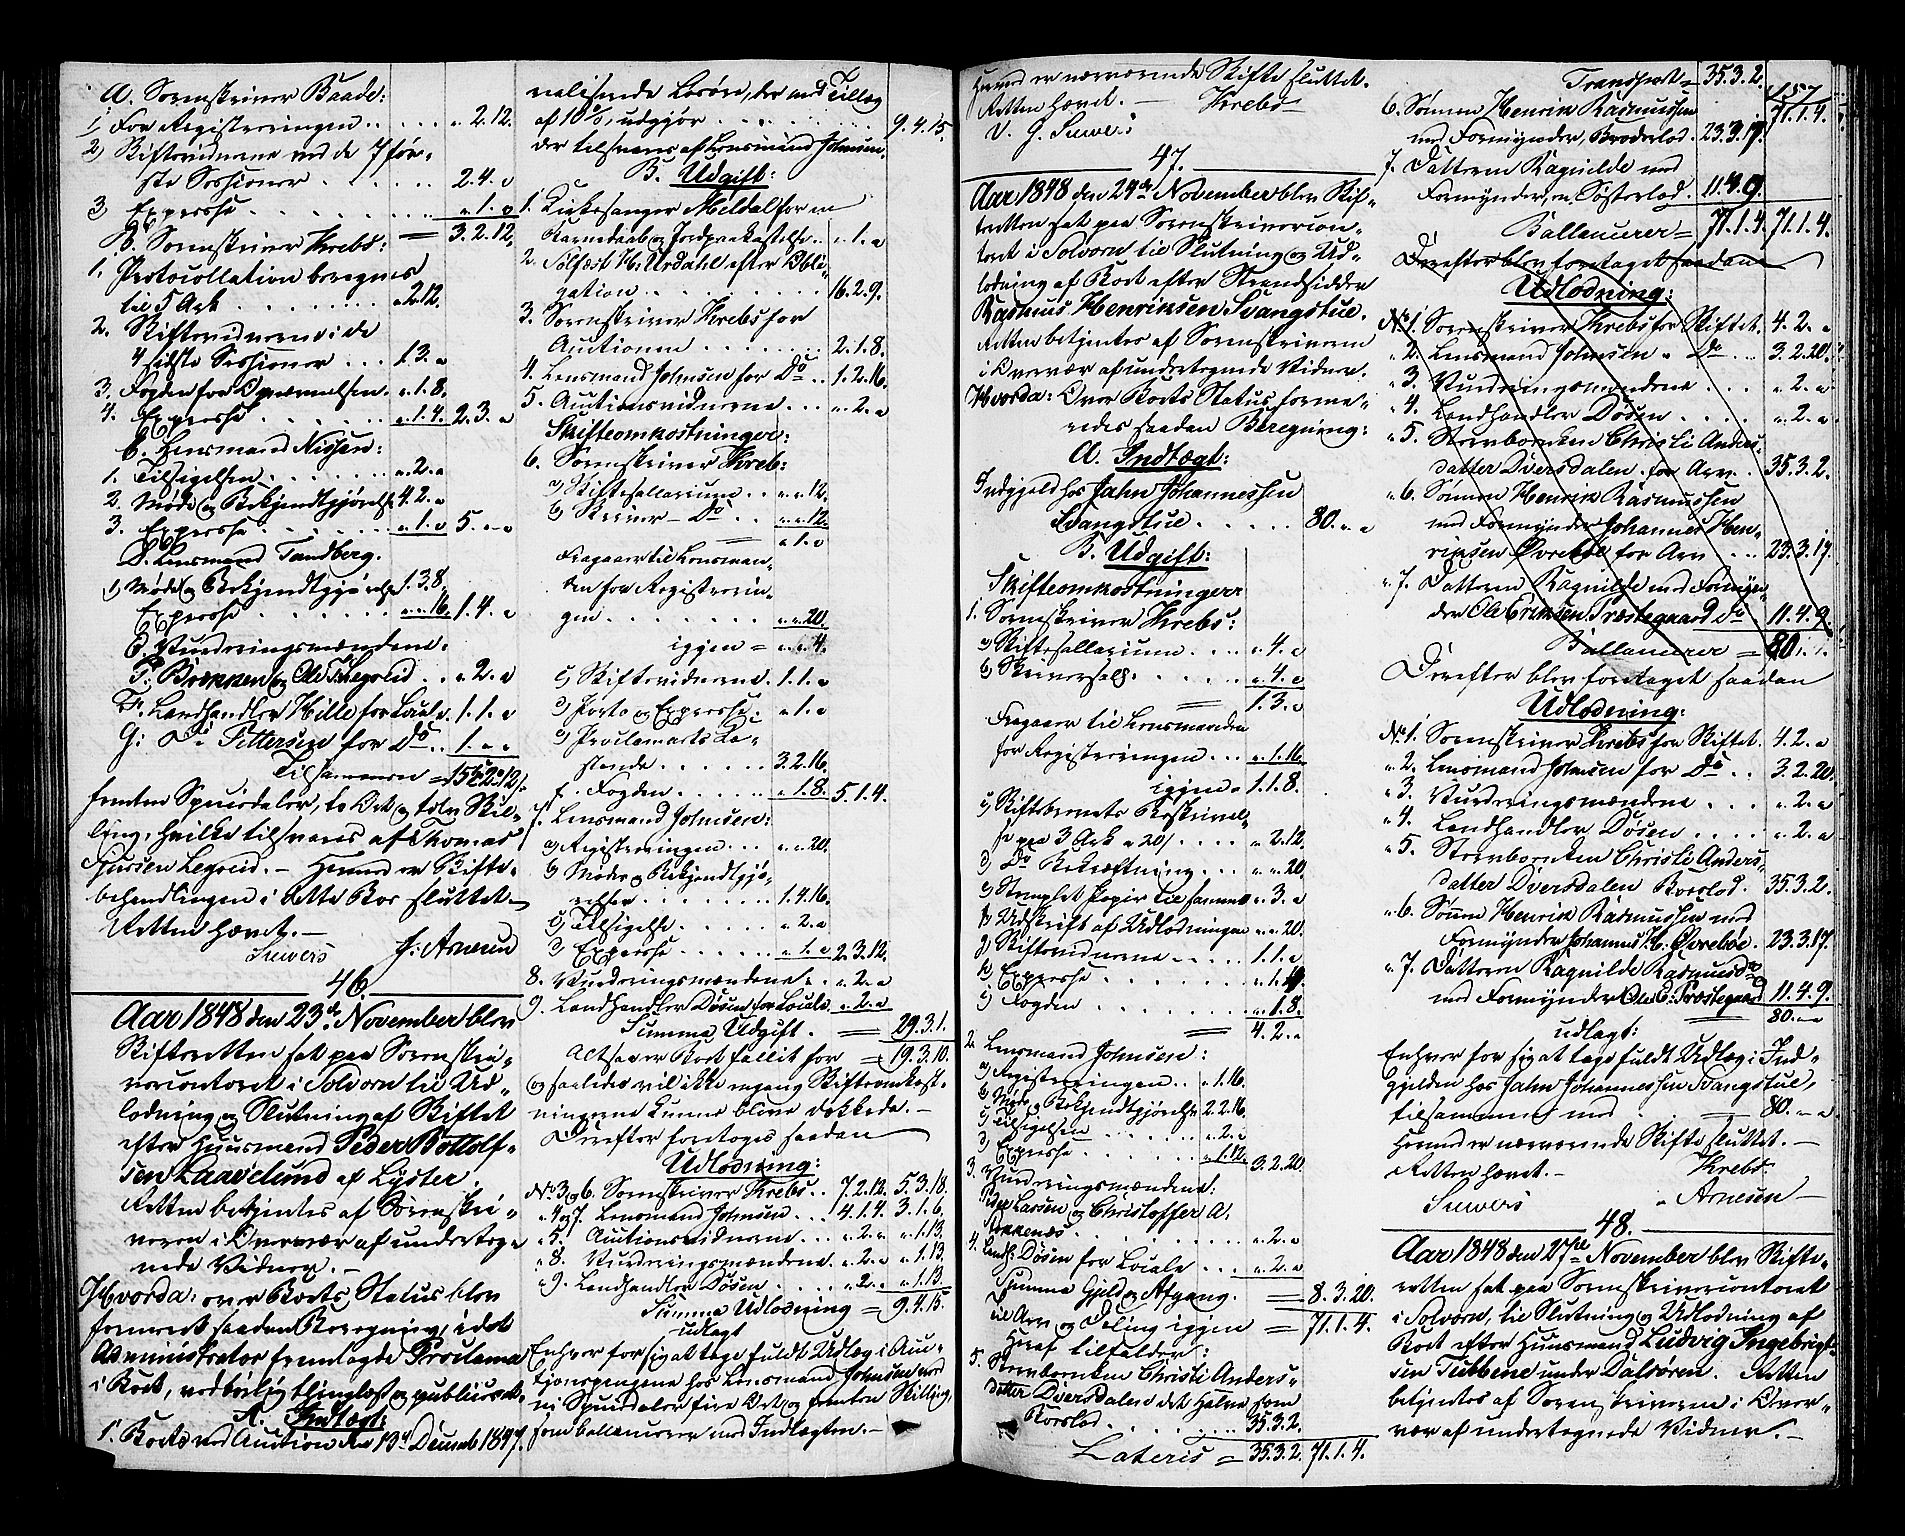 A. Sorenskriver Baade:
1, For Registreringen . . . „ 2.12.
2) Skiftevidnerne ved de 7 før-
ste Sessioner . . . . . 2.4. „
3) Expresse . . . . . „ 1. „
= 3.2.12.
B. Sorenskriver Krebs:
1. Protocollation beregnes
til 5 Ark . . . . . „ 2.12.
2. Skiftevidnerne i de
4 sidste Sessioner . . . 1.3. „
3. Fogden for Opnævnelsen . „ 1.8.
4. Expresse . . . . . „ 1.4. 2.3. „
C. Lensmand Nissen:
1. Tilsigelsen . . . . . „ 2. „
2. Møde og Bekjendtgjørelse 4.2. „
3. Expresse . . . . . „ 1. „ 5. „ „
D. Lensmand Tandberg.
1) Møde og Bekjendtgjørelse 1.3.8.
Expresse . . . . . „ „ 16. 1.4. „
E. Vurderingsmændene:
P. Brekken og Ole Thregold . . „ 2. „
F. Landhandler Hille for Locale . 1.1. „
G: Do Pettersen for Do . . 1. „ „
Tilsammen = 15. 2. 12.
femten Speciedaler, to Ort og tolv Skil-
ling, hvilke tilsvares af Thomas
Hermed er Skifte-
behandlingen i dette Boe sluttet.
Retten hævet. —
Siewers J. Arnesen
46.
Aar 1848 den 23de November blev
Skifteretten sat paa Sorenskri-
vercontoret i Solvorn til Ud-
lodning og Slutning af Skiftet
efter Huusmand Peder Bottolf-
sen Laavelund af Lyster.
Retten betjentes af Sorenskri-
veren i Overvær af underteg-
nede Vidner. —
Hvorda: over Boets Status blev
formeret saadan Beregning, idet
Administrator fremlagde Proclama
i Boet, vedbørlig thinglæst og publiceret.
A. Indtægt:
1. Boets ved Auction den 13de Decemb 1847
realiserede Løsøre, der med Tillæg
af 10 % udgjør . . . . . 9.4.15.
der tilsvares af Lensmand Johnsen.
B. Udgift:
1. Kirkesanger Meldal for en
Barnedaab og Jordpaakastelse . . „ 1. „
2. Sølfæst H: Urdahl efter Obli-
gation . . . . . 16.2.9.
3. Sorenskriver Krebs for
Auctionen . . . . . 2.1.8.
4. Lensmand Johnsen for Do . . 1.2.16.
5. Auctionsvidnerne . . . „ 2. „
Skifteomkostninger:
6. Sorenskriver Krebs:
a) Skiftesallarium . . „ „ 12.
b) Skriver – Do . . „ „ 12.
= „ 1. „
Fragaaer til Lensman-
den for Registrerin-
gen . . . . . „ „ 20.
igjen = „ „ 4.
c) Skiftevidnerne . 1.1. „
d) Porto og Expresse . „ 1. „
e) Proclamarts Be-
kostende . . . . . 3.2.16.
f. Fogden . . . . . „ 1.8. 5.1.4.
7. Lensmand Johnsen:
a) Registreringen . . . „ „ 20.
b) Møde og Bekjendtgjø-
relser . . . . . 1.4.16.
c) Tilsigelse . . . . . „ 2. „
d) Expresse . . . . . „ 1. „ 2.3.12.
8. Vurderingsmændene . . „ 2. „
9. Landhandler Døsen for Locale . „ 2. „
Summa Udgift . = 29.3.1.
Altsaa er Boet fallit for = 19.3.10.
og saaledes vil ikke engang Skifteomkost-
ningerne kunne blive dækkede. —
Derefter foretoges saadan
Udlodning:
No 3 og 6. Sorenskriver Krebs . . 7.2.12. 5.3.18.
„ 4 og 7. Lensmand Johnsen . . . 4.1.4. 3.1.6.
„ 5. Auctionsvidnerne . . „ 2. „ „ 1.13.
„ 8. Vurderingsmændene . „ 2. „ „ 1.13.
„ 9. Landhandler Døsen . . „ 2. „ „ 1.13.
Summa Udlodning = 9.4.15.
udlagt
Enhver for sig at tage fuldt Udlæg i Auc-
tionspengene hos Lensmand Johnsen med
ni Speciedaler fire Ort og femten Skilling,
som ballancerer med Indtægten. —
Hermed er nærværende Skifte sluttet.
Retten hævet. — Krebs
V. G. Siewers
47.
Aar 1848 den 24de November blev Skif-
teretten sat paa Sorenskrivercon-
toret i Solvorn til Slutning og Ud-
lodning af Boet efter Strandsidder
Rasmus Henriksen Svangstue.
Retten betjentes af Sorenskriveren
i Overvær af undertegnede Vidner.
Hvorda: Over Boets Status forme-
redes saadan Beregning:
A. Indtægt:
Indgjeld hos Jahn Johannessen
Svangstue . . . . . 80. „ „
B. Udgift:
Skifteomkostninger
1. Sorenskriver Krebs:
a) Skiftesallarium . . . „ 4. „
b) Skriversall. . . . . „ 4. „
= 1.3. „
Fragaaer til Lensmanden
for Registreringen . . . „ 1.16.
igjen = 1.1.8.
c) Skiftebrevets Beskrivel-
se paa 3 Ark a 20/ . . . . „ 2.12.
d) Do Bekræftning . . . „ „ 20.
e) Stemplet Papir til samme „ 3. „
f) Udskrift af Udlodningen „ „ 20.
g) Skiftevidnerne . . . . 1.1. „
h) Expresse . . . . . „ 1.4.
i) Fogden . . . . . „ 1.8.
= 4.2. „
2. Lensmand Johnsen:
a) Registreringen . . „ 1.16.
b) Møde og Bekjendtgjørelse 2.2.16.
c) Tilsigelsen . . . . . „ 2. „
d) Expresse . . . . . „ 1.12. 3.2.20.
3. Vurderingsmændene:
Larsen og Christoffer A.
. . . . . „ 2. „
4. Landh: Døsen for Locale . . . „ 2. „
Summa Gjeld og Afgang. = 8.3.20.
til Arv og Deling igjen = 71.1.4.
Heraf tilfalder:
5. Stervboenken Christi Anders-
datter Dversdalen det halve som
Boeslod . . . . . 35.3.2.
Lateris = 35.3.2. 71.1.4.
157
Transport = 35.3.2. 71.1.4.
6. Sønnen Henrik Rasmussen
med Formynder, Broderlod . 23.3.17.
7. Datteren Ragnilde med
Formynder, en Søsterlod . 11.4.9.
Ballancerer = 71.1.4. 71.1.4.
Derefter blev foretaget saadan
Udlodning:
No 1. Sorenskriver Krebs for Skiftet . 4.2. „
„ 2. Lensmand Johnsen „ Do . . 3.2.20.
„ 3. Vurderingsmændene . . . „ 2. „
„ 4. Landhandler Døsen . . . . „ 2. „
„ 5. Stervboenken Christi Anders-
datter Dversdalen for Arv . . 35.3.2.
„ 6. Sønnen Henrik Rasmussen
med Formynder Johannes Hen-
riksen Øvrebøe for Arv . . . 23.3.17.
„ 7. Datteren Ragnilde med Formyn-
der Ole Eriksen Præstegaard Do . 11.4.9.
Ballancerer = 80.
Derefter blev foretaget saadan
Udlodning:
No 1. Sorenskriver Krebs for Skiftet . 4.2. „
„ 2. Lensmand Johnsen for Do . . 3.2.20.
„ 3. Vurderingsmændene . . . „ 2. „
„ 4. Landhandler Døsen . . . . „ 2. „
„ 5. Stervboenken Christi Anders-
datter Dversdalen Boeslod . 35.3.2.
„ 6. Sønnen Henrik Rasmussen med
Formynder Johannes H. Øvrebøe . 23.3.17.
„ 7. Datteren Ragnilde Rasmusdr
med Formynder Ole E: Præstegaard 11.4.9.
= 80. „ „
udlagt:
Enhver for sig at tage fuldt Udlæg i Ind-
gjelden hos Jahn Johannessen Svangstue,
tilsammen med = 80. „ „
Hermed er nærværende Skifte sluttet. —
Retten hævet. — Krebs
Siewers Arnesen
48.
Aar 1848 den 27de November blev Skifte-
retten sat paa Sorenskrivercontoret
i Solvorn, til Slutning og Udlodning af
Boet efter Huusmand Ludvig Ingebrigt-
sen Tubbene under Dalsøren. Retten
betjentes af Sorenskriveren i Over-
vær af undertegnede Vidner. —